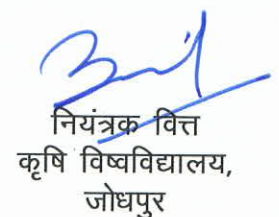 नियंत्रक वित्त
कृषि विष्वविद्यालय,
जोधपुर